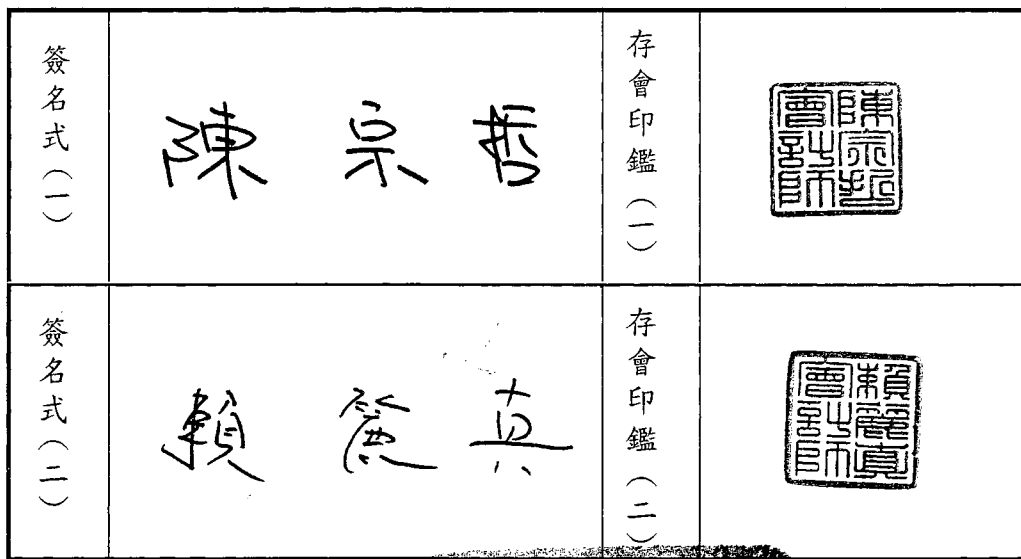 簽名式（一）
陳宗哲
存會印鑑（一）
陳宗哲會計師
簽名式（二）
賴麗真
存會印鑑（二）
賴麗真會計師